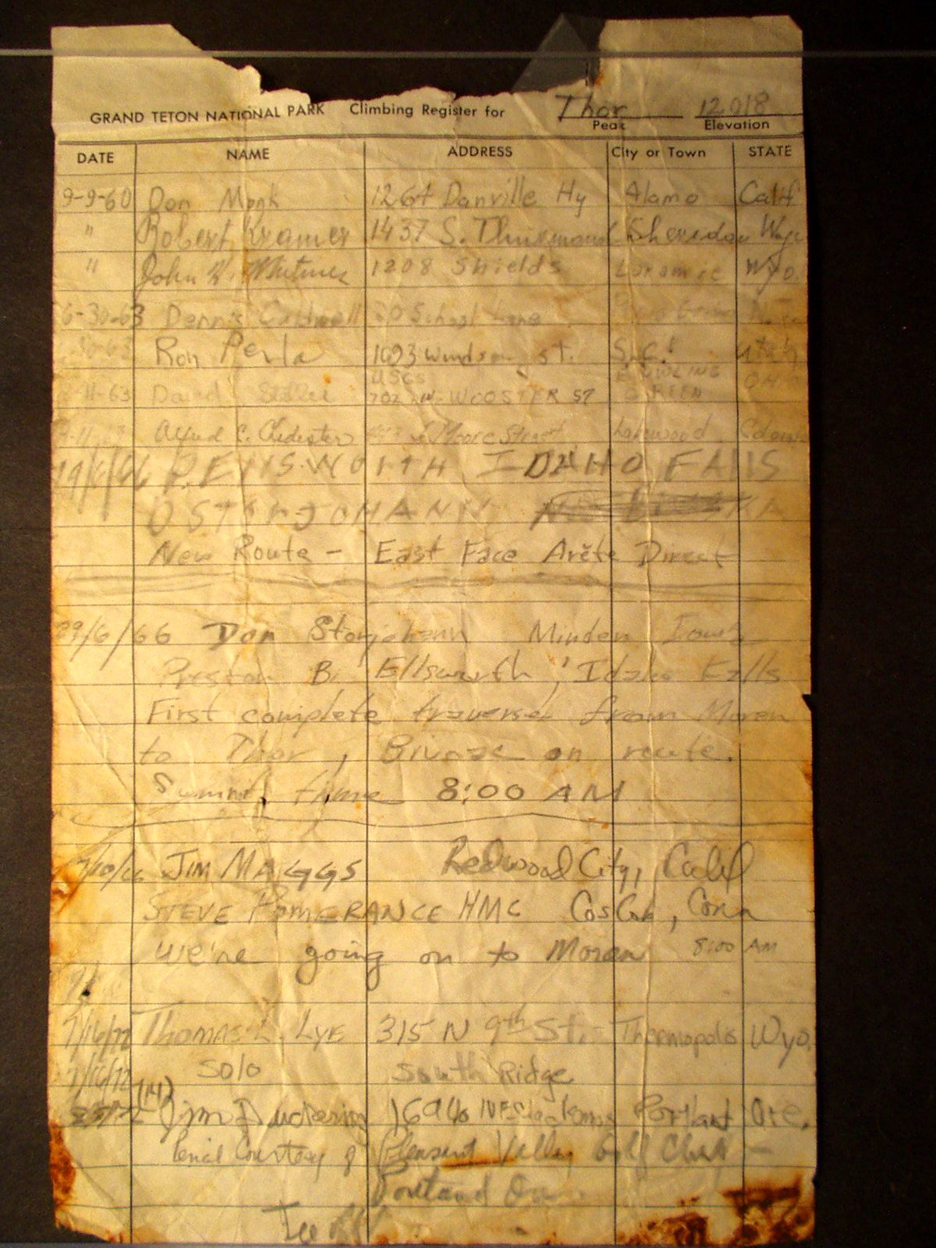 GRAND TETON NATIONAL PARK Climbing Register for Thor 12018
Peak Elevation
DATE NAME ADDRESS City or Town STATE
9-9-60 Don Monk 1264 Danville Hy Alamo Calif
" Robert Kramer 1437 S. Thurmond Sheredan Wyo
" John W. Whitmer 1208 Shields Laramie Wyo.
6-30-63 Dennis Caldwell School Lane
Ron Perla 1093 Windsor st. S.L.C. Utah
USGS BOWLING
11-63 David 702 W. WOOSTER ST GREEN OH
Alfred C. Chidester Moore Street Lakewood
19/6/66 P. ELLSWORTH IDAHO FALLS
D STORJOHANN
New Route - East Face Arête Direct
29/6/66 Don Storjohann Minden Iowa
Preston B. Ellsworth, Idaho Falls
First complete traverse from Moran
to Thor, Bivouac on route.
Summit time 8:00 AM
7/10/66 JIM MAGGS Redwood City, Calif
STEVE POMERANCE HMC Cos Cob, Conn
we're going on to Moran 8:00 AM
7/16/72 THOMAS L. LYE 315 N 9th St. Thermopolis Wyo.
7/16/72 solo South Ridge
(14) Jim 16946 NE Portland Ore.
Pencil Courtesy of Pleasant Valley Golf Club -
Portland Ore
Tee off